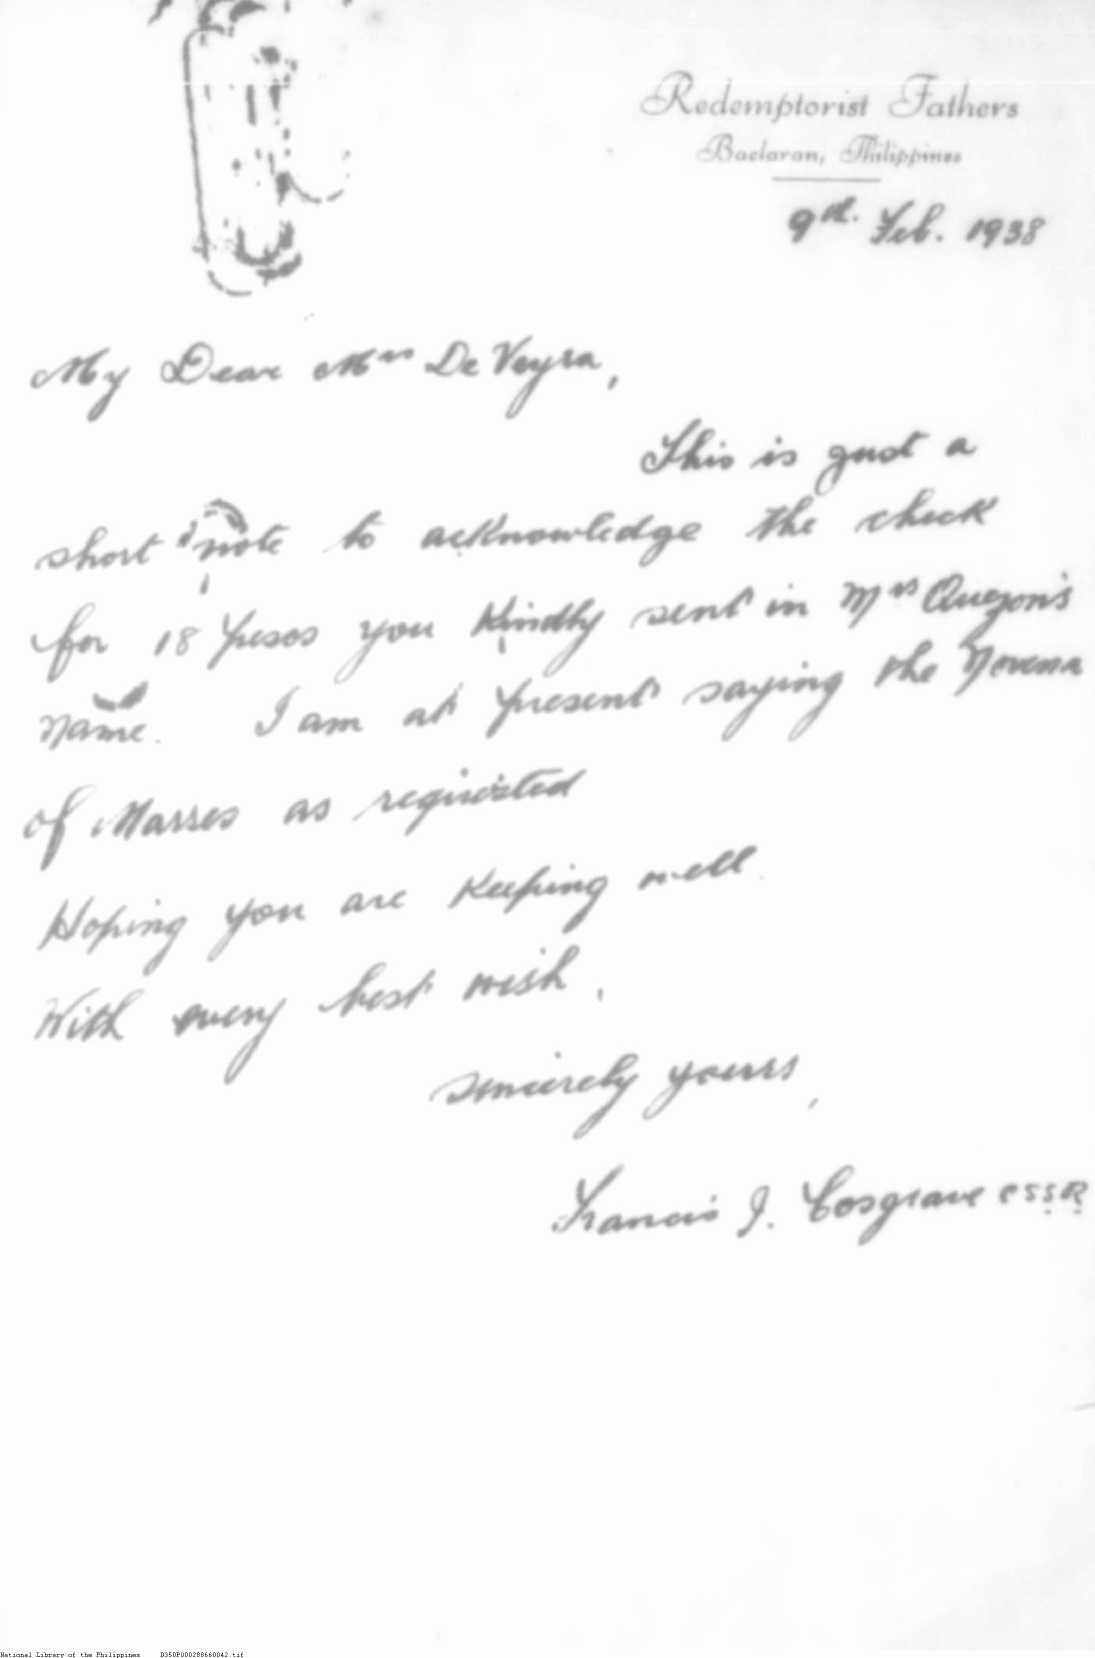 Redemptorist Fathers
Baclaran, Philippines
9th. Feb. 1938
My Dear Mrs De Veyra,
This is just a
short note to acknowledge the check
for 18 pesos you kindly sent in Mrs Quezon's
name. I am at present saying the Novena
of Masses as requested
Hoping you are keeping well.
With every best wish,
sincerely yours,
Francis J. Cosgrave C.S.S.R.
National Library of the Philippines D350P000288660042.tif